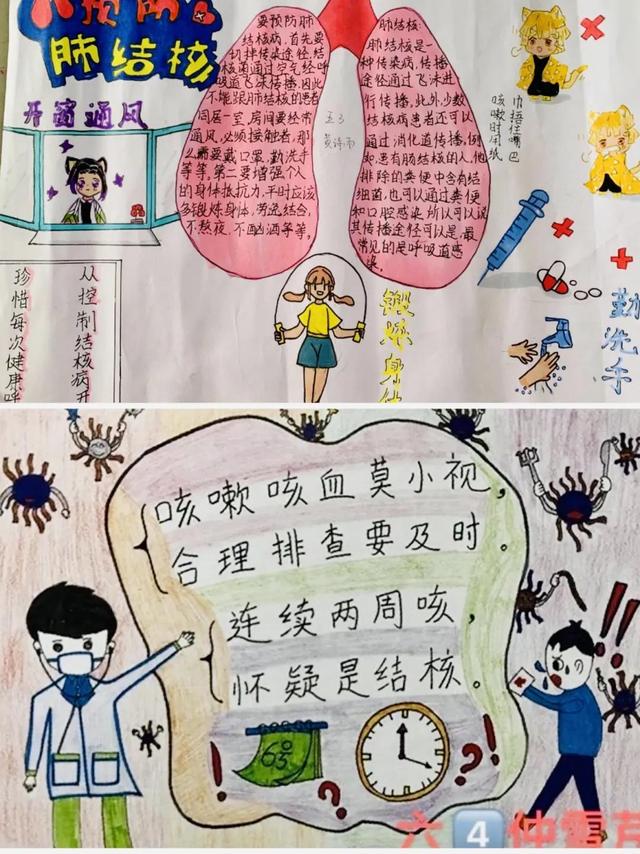 预防
肺结核
开窗通风
从控制结核病开
珍惜每次健康呼
要预防肺
结核病,首先要
切排传染途径,结
核菌通过空气经呼
吸道飞沫传播,因此
不能跟肺结核的患者
同居一室,房间要经常
通风,必须接触者,那
么需要戴口罩,勤洗手
等等,第二要增强个人
的身体抵抗力,平时应该
多锻炼身体,劳逸结合,
不熬夜、不酗酒等等。
五3
肺结核:
肺结核是一
种传染病,传播
途径通过飞沫进
行传播,此外,少数
结核病患者还可以
通过消化道传播,例
如,患有肺结核的人,他
排除的粪便中含有结
细菌,也可以通过粪便
和口腔感染.所以可以说
其传播途径可以是,最
常见的是呼吸道感
染。
咳嗽时用纸
巾捂住嘴巴
锻炼身体
勤洗手
咳嗽咳血莫小视,
合理排查要及时。
连续两周咳,
怀疑是结核。
六4仲雪